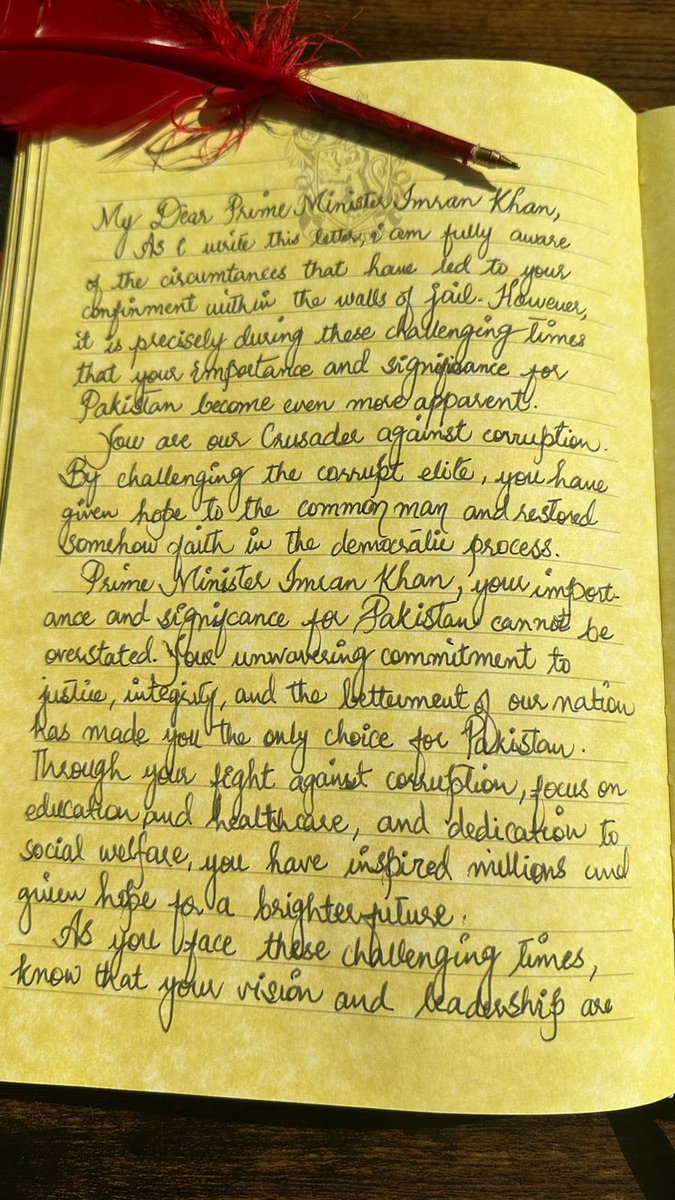 My Dear Prime Minister Imran Khan,
As I write this letter, i am fully aware
of the circumtances that have led to your
confinment within the walls of jail. However,
it is precisely during these challenging Times
that your importance and significance for
Pakistan become even more apparent.
You are our Crusader against corruption.
By challenging the corrupt elite, you have
given hope to the common man and restored
somehow faith in the democratic process.
Prime Minister Imran Khan, your import-
ance and signifcance for Pakistan cannot be
overstated. Your unwavering commitment to
justice, integrity, and the betterment of our nation
has made you the only choice for Pakistan.
Through your fight against corruption, focus on
education and healthcare, and dedication to
social welfare, you have inspired millions and
given hope for a brighter future.
As you face these challenging Times,
know that your vision and leadership are